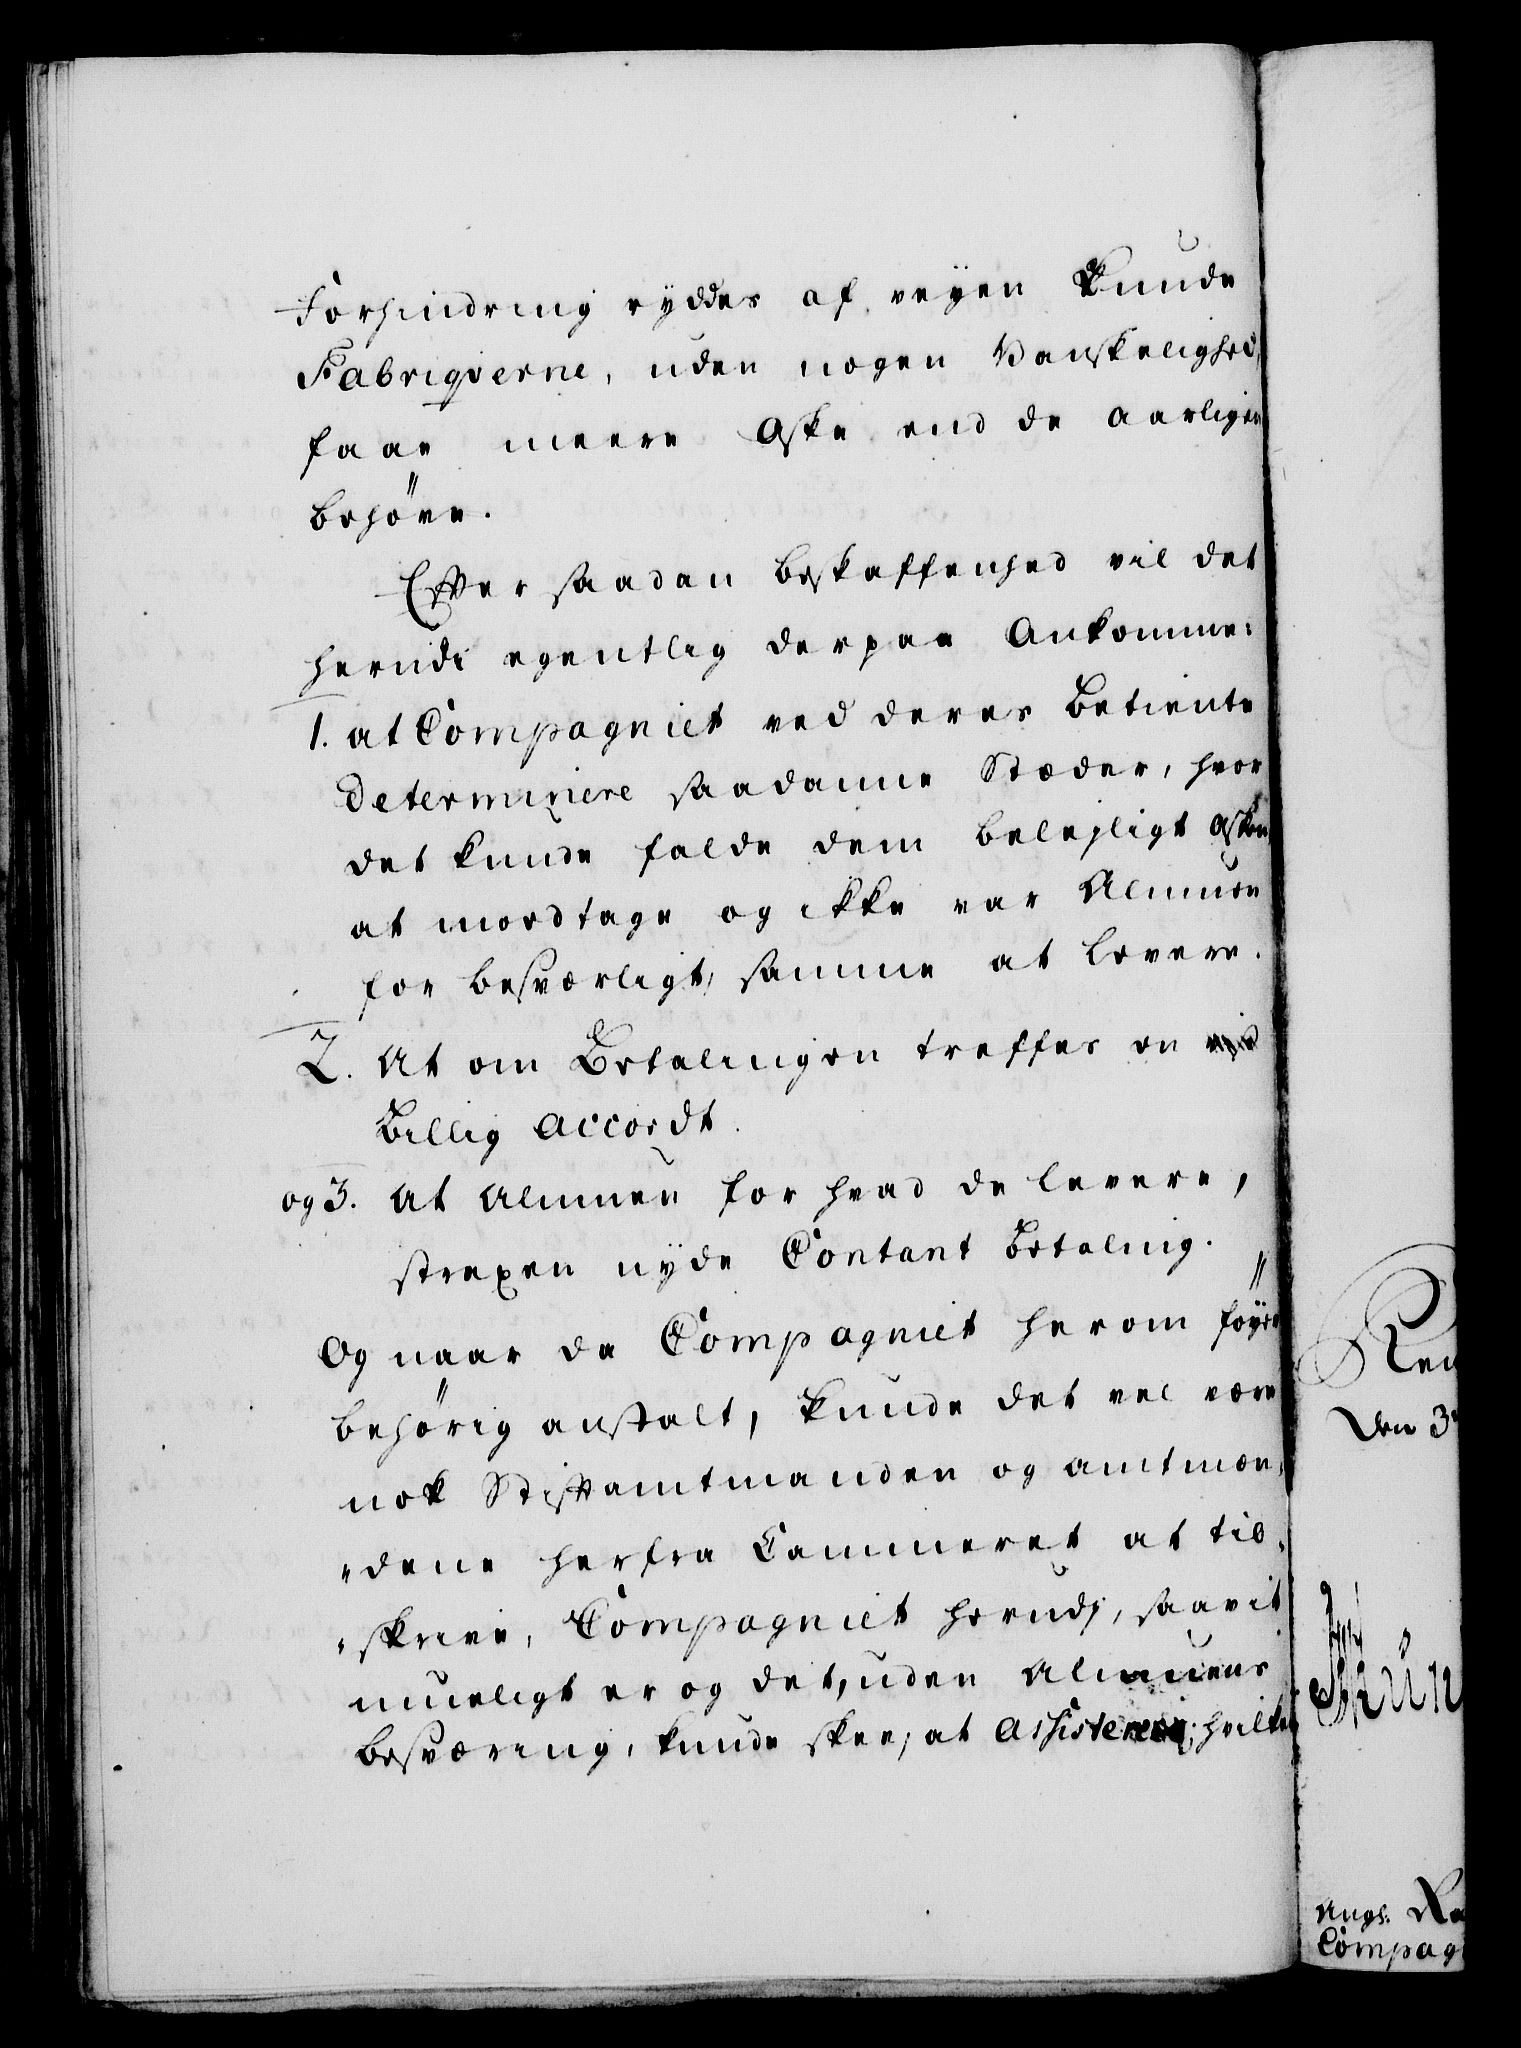 Forhindring ryddes af veyen kunde
Fabriqverne, uden nogen Vanskelighed,
faae meere Aske end de aarligen
behöve.
Efter saadan beskaffenhed vil det
herudi egentlig derpaa Ankomme:
1. at Compagniet ved deres Betiente
determinere saadanne Stæder, hvor
det kunde falde dem belejligt Asken
at modtage og ikke var Almuen
for besværligt, samme at levere.
2. At om Betalingen treffes en
Billig Accordt.
og 3. At Almuen for hvad de levere,
straxen nyde Contant betaling.
Og naar da Compagniet herom föyer
behörig anstalt, kunde det vel være
nok Stiftamtmanden og amtmæn-
dene herfra Cammeret at til-
skrive, Compagniet herudj, saavit
mueligt er og det, uden Almuens
besværing, kunde skee, at Assistere; hvilket
Den 3
Angl. Re
Compag